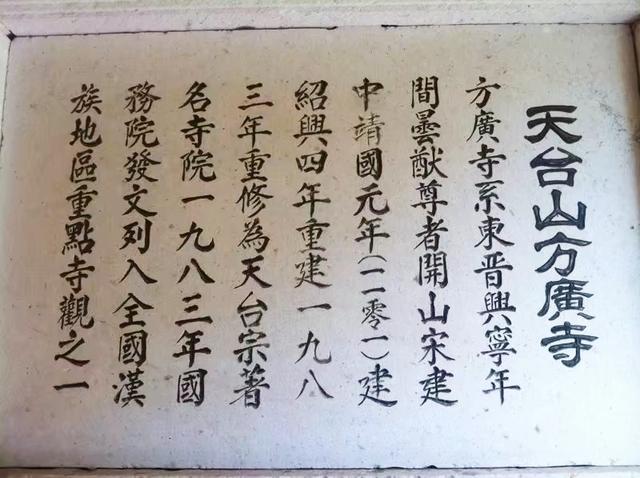 天台山方廣寺
方廣寺系東晋興寧年
間曇猷尊者開山宋建
中靖國元年(一一零一)建
紹興四年重建一九八
三年重修為天台宗著
名寺院一九八三年國
務院發文列入全國漢
族地區重點寺觀之一